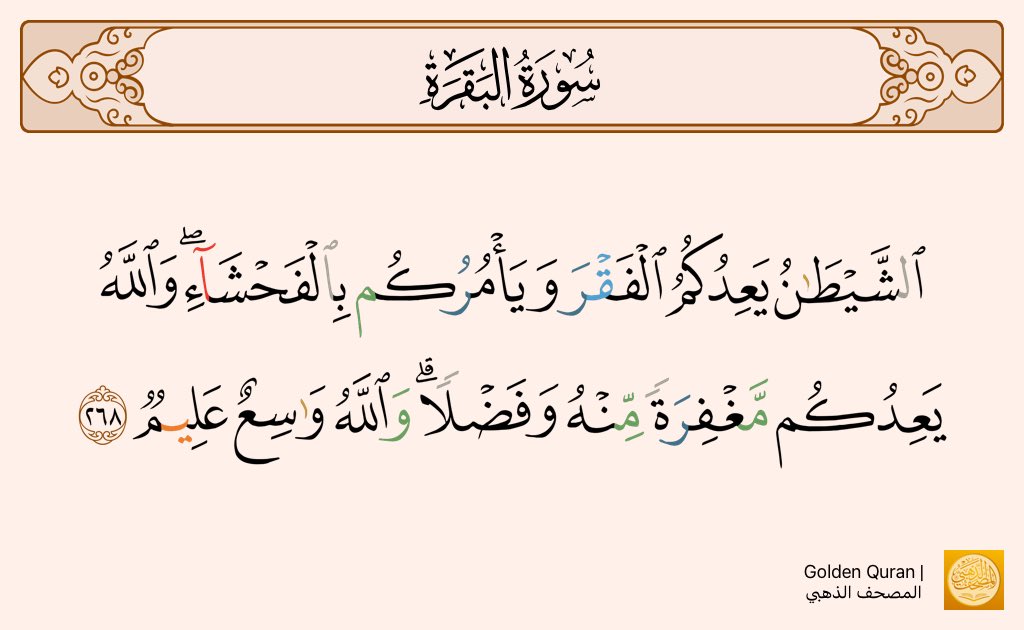 سُورَةُ البَقَرَةِ
ٱلشَّيْطَٰنُ يَعِدُكُمُ ٱلْفَقْرَ وَيَأْمُرُكُم بِٱلْفَحْشَآءِ ۖ وَٱللَّهُ
يَعِدُكُم مَّغْفِرَةً مِّنْهُ وَفَضْلًا ۗ وَٱللَّهُ وَٰسِعٌ عَلِيمٌ ٢٦٨
Golden Quran |
المصحف الذهبي